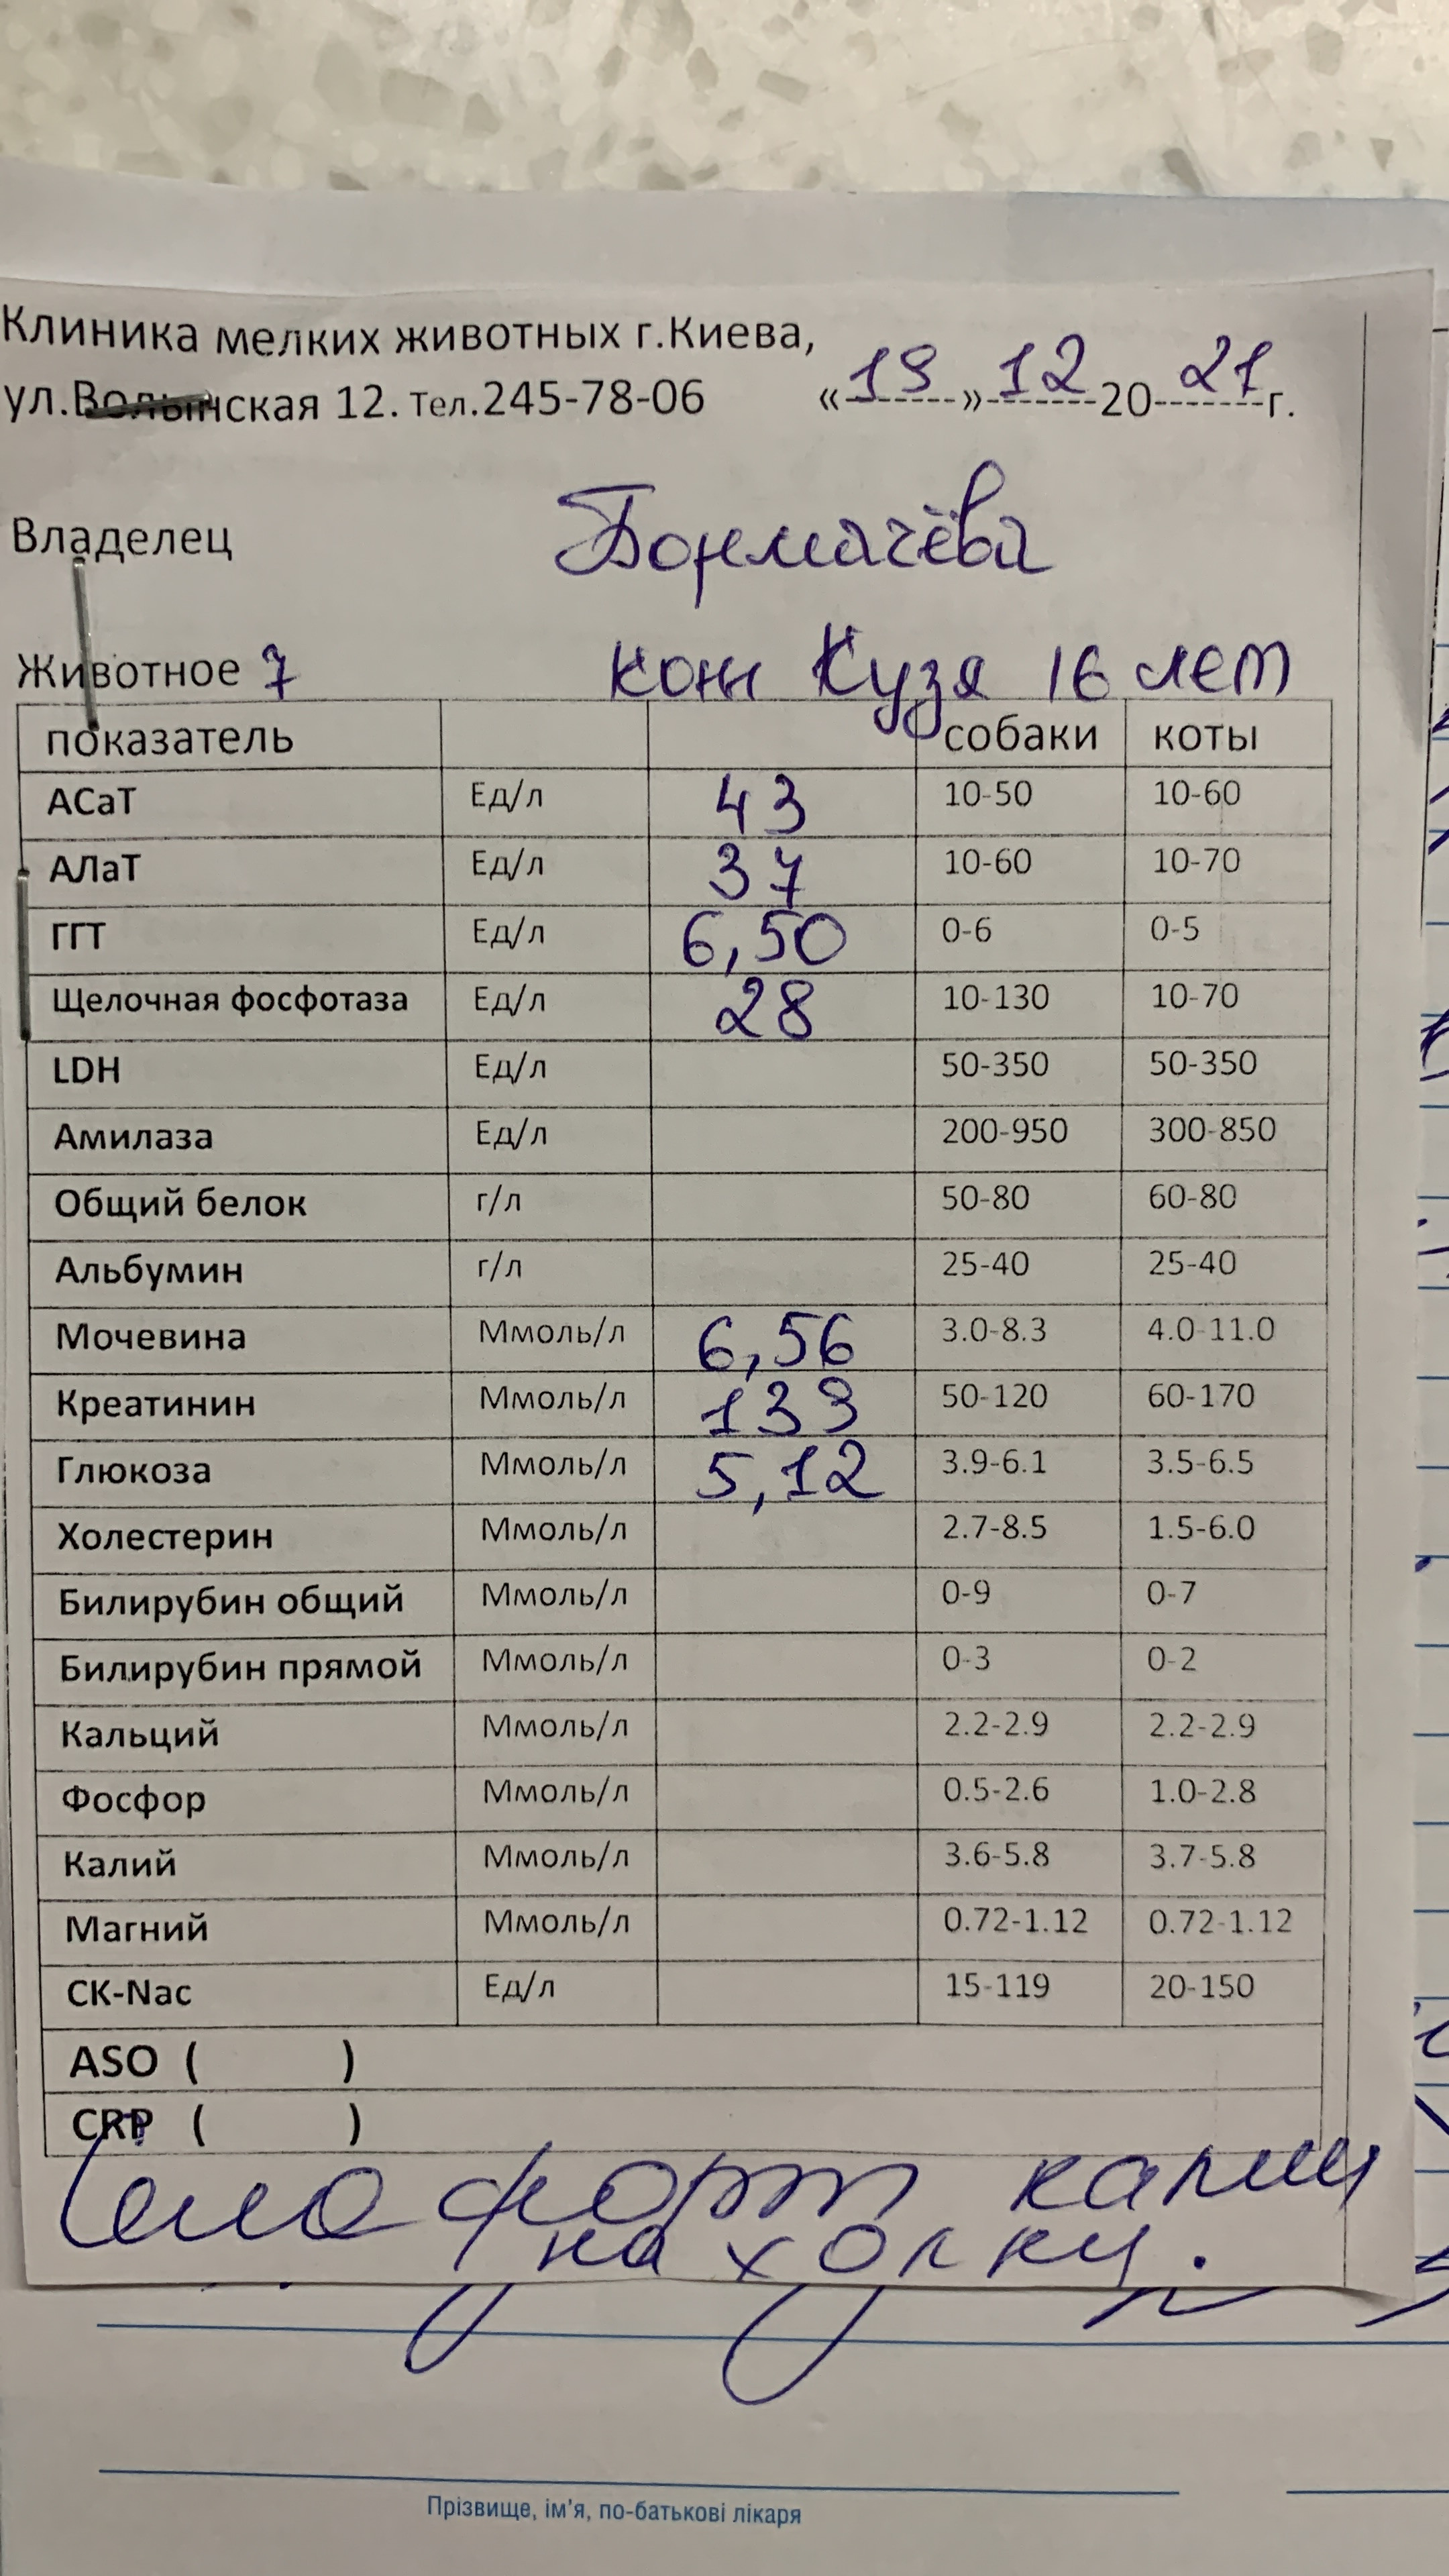 Клиника мелких животных г.Киева,
ул.Волынская 12. Тел.245-78-06 «19» 12 2021г.
Владелец
Животное 7 кот Кузя 16 лет
показатель собаки коты
АСаТ Ед/л 43 10-50 10-60
АЛаТ Ед/л 37 10-60 10-70
ГГТ Ед/л 6,50 0-6 0-5
Щелочная фосфотаза Ед/л 28 10-130 10-70
LDH Ед/л 50-350 50-350
Амилаза Ед/л 200-950 300-850
Общий белок г/л 50-80 60-80
Альбумин г/л 25-40 25-40
Мочевина Ммоль/л 6,56 3.0-8.3 4.0-11.0
Креатинин Ммоль/л 133 50-120 60-170
Глюкоза Ммоль/л 5,12 3.9-6.1 3.5-6.5
Холестерин Ммоль/л 2.7-8.5 1.5-6.0
Билирубин общий Ммоль/л 0-9 0-7
Билирубин прямой Ммоль/л 0-3 0-2
Кальций Ммоль/л 2.2-2.9 2.2-2.9
Фосфор Ммоль/л 0.5-2.6 1.0-2.8
Калий Ммоль/л 3.6-5.8 3.7-5.8
Магний Ммоль/л 0.72-1.12 0.72-1.12
CK-Nac Ед/л 15-119 20-150
ASO ( )
CRP ( )
форт капли
на холку.
Прізвище, ім'я, по-батькові лікаря